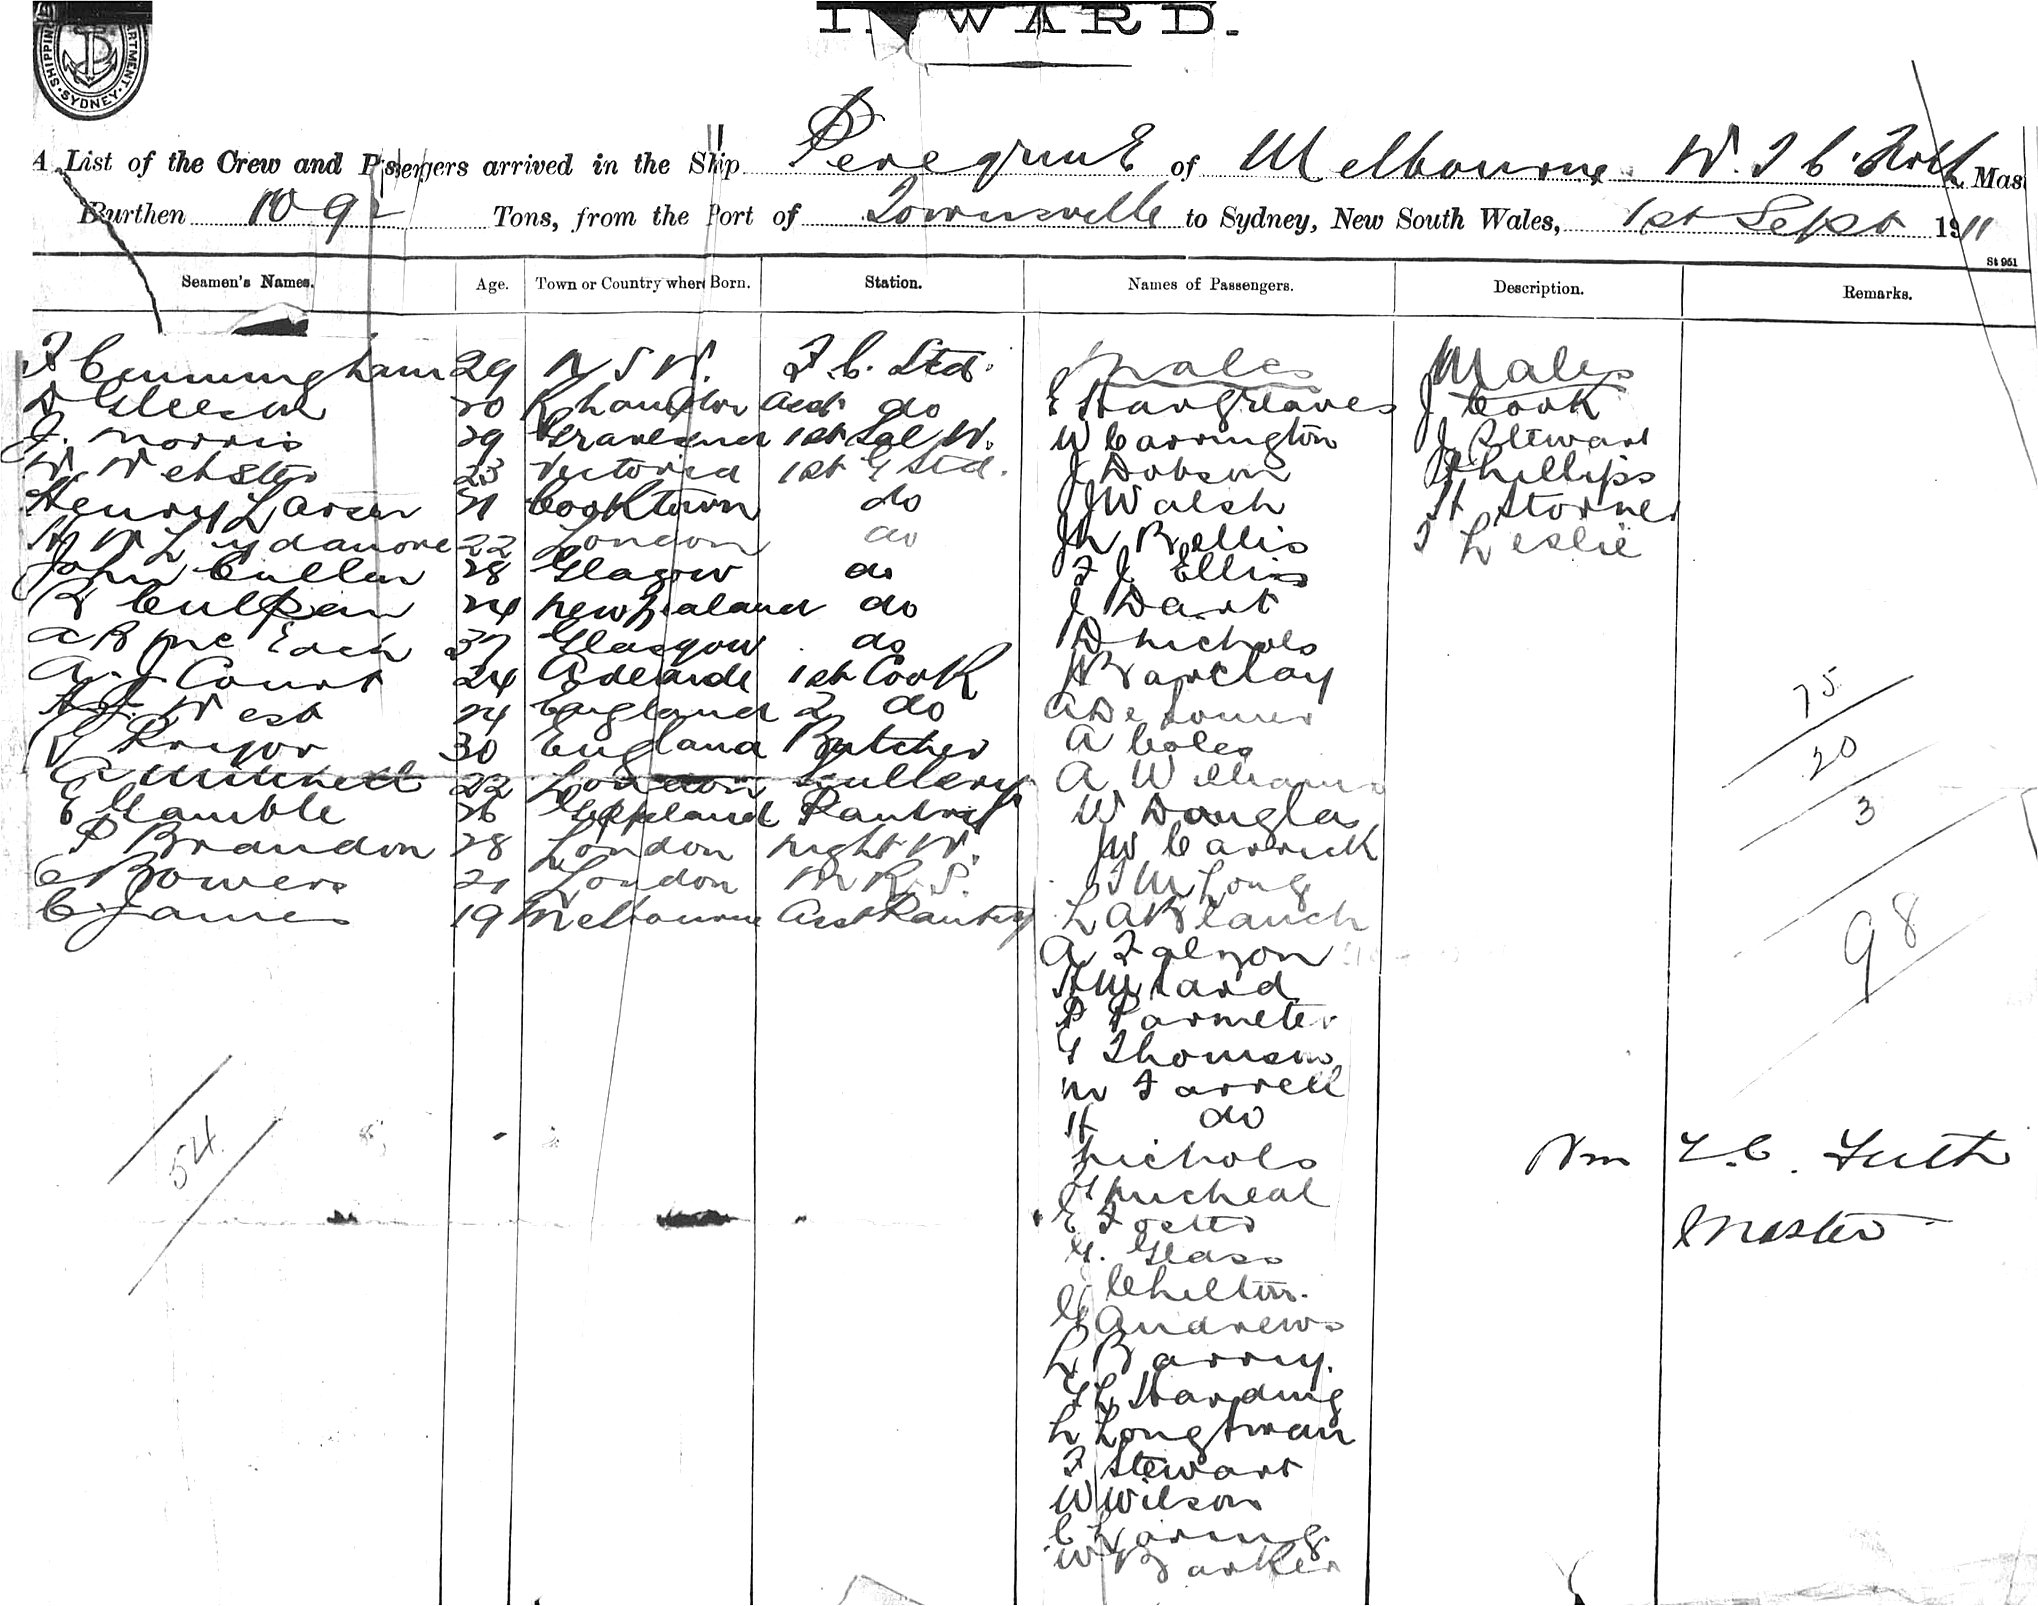 SHIPPING DEPARTMENT SYDNEY
INWARD.
A List of the Crew and Passengers arrived in the Ship Peregrine of Melbourne W. T. C. Mas
Burthen 1092 Tons, from the Port of Townsville to Sydney, New South Wales, 1st Sept 1911
St 951
Seamen's Names. Age. Town or Country where Born. Station. Names of Passengers. Description. Remarks.
F Cunningham 29 N S W. F. C. Std. Males Males
D Gleeson 20 R'hampton Asst do E Hargreaves J Cook
J. Morris 29 Gravesend 1st Sal W. W Carrington J Stewart
W Webster 23 Victoria 1st G Std. J Dobson Phillips
Henry Larsen 21 Cooktown do J Walsh H Storner
H W Lydamore 22 London do J h Bellis T Leslie
John Cullen 28 Glagow do F J Ellis
R Culpan 24 New Zealand do J Dart
A R Mc Each 37 Glasgow do D Nichols
A. J Court 24 Adelaide 1st Cook Barclay
A. J. West 24 England 2 do A De
R Pryor 30 England Butcher A Coles
A Mitchell 22 London Scullery A Williams
E Gamble 26 Gippsland Pantry W Douglas
P Brandon 28 London Night W. J W Carrick
C Bowers 21 London M R. S. T M Long
C. James 19 Melbourne Asst Pantry L A Blanch
A Falzon
H Millard
P Parmeter
G Thomson
M Farrell
H do
Nichols
G Micheal
E Foster
G. Glass
Chilton.
G Andrews
L Barry.
G L Harding
L Longtwan
F Stewart
W Wilson
C Laring
W Barker
75
20
3
98
54
Wm T. C. Firth
Master